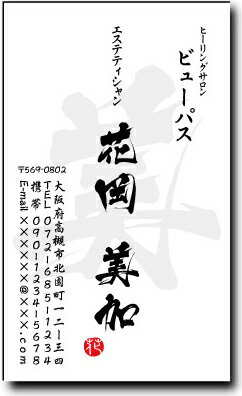 ヒーリングサロン
ビューパス
エステティシャン
花岡 美加
花
美
〒569-0802
大阪府高槻市北園町一二ー三四
TEL 072-685-1234
携帯 090-1234-5678
E-mail ××××××@×××.com